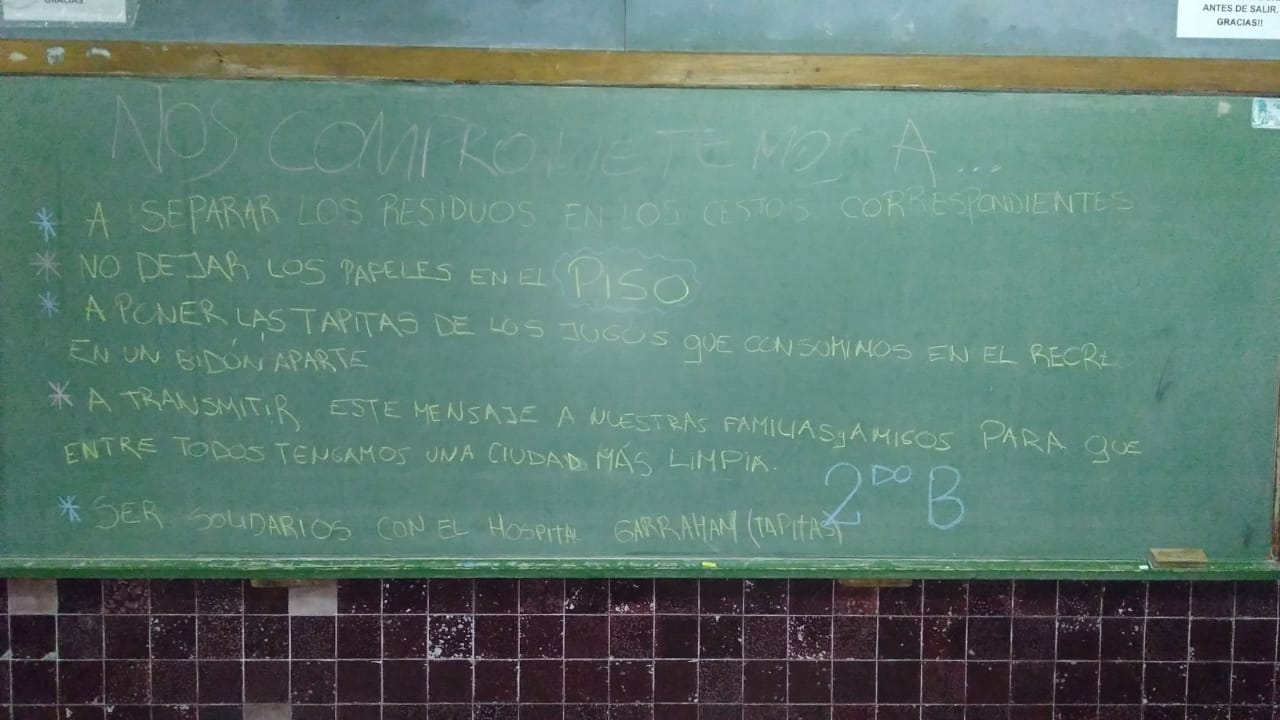 GRACIAS
ANTES DE SALIR.
GRACIAS!!
NOS COMPROMETEMOS A...
* A SEPARAR LOS RESIDUOS EN LOS CESTOS CORRESPONDIENTES
* NO DEJAR LOS PAPELES EN EL PISO
* A PONER LAS TAPITAS DE LOS JUGOS QUE CONSUMIMOS EN EL RECRE
EN UN BIDÓN APARTE
* A TRANSMITIR ESTE MENSAJE A NUESTRAS FAMILIAS y AMIGOS PARA QUE
ENTRE TODOS TENGAMOS UNA CIUDAD MÁS LIMPIA.
2DO B
* SER SOLIDARIOS CON EL HOSPITAL GARRAHAM (TAPITAS)